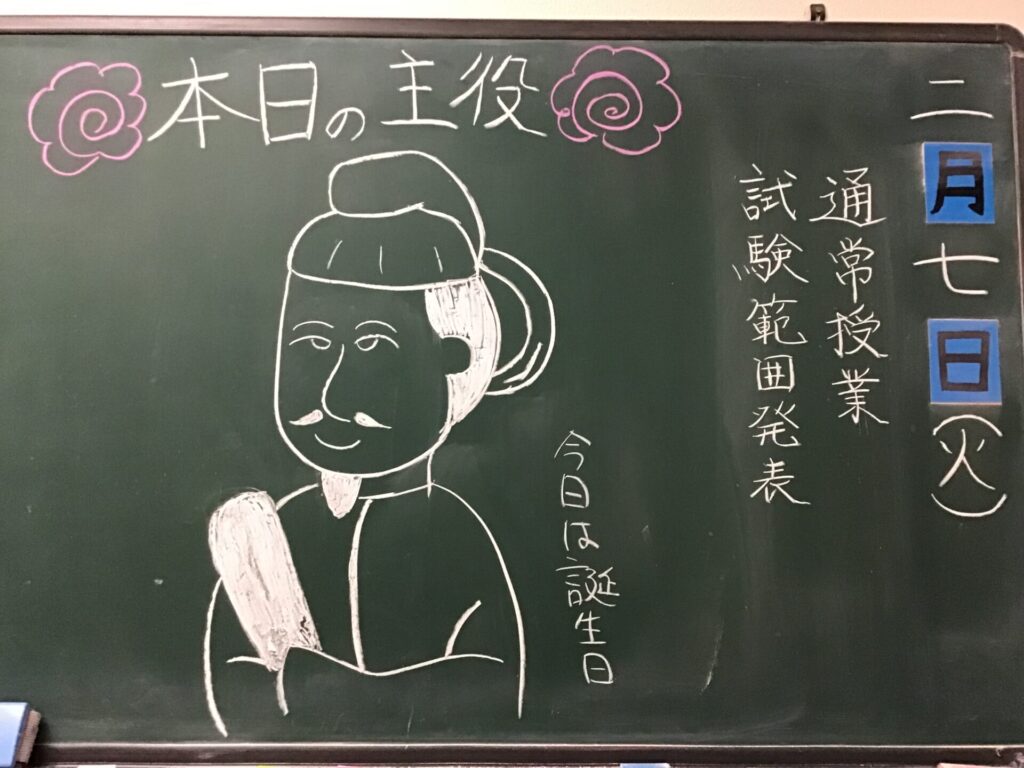 本日の主役
二月七日(火)
通常授業
試験範囲発表
今日は誕生日